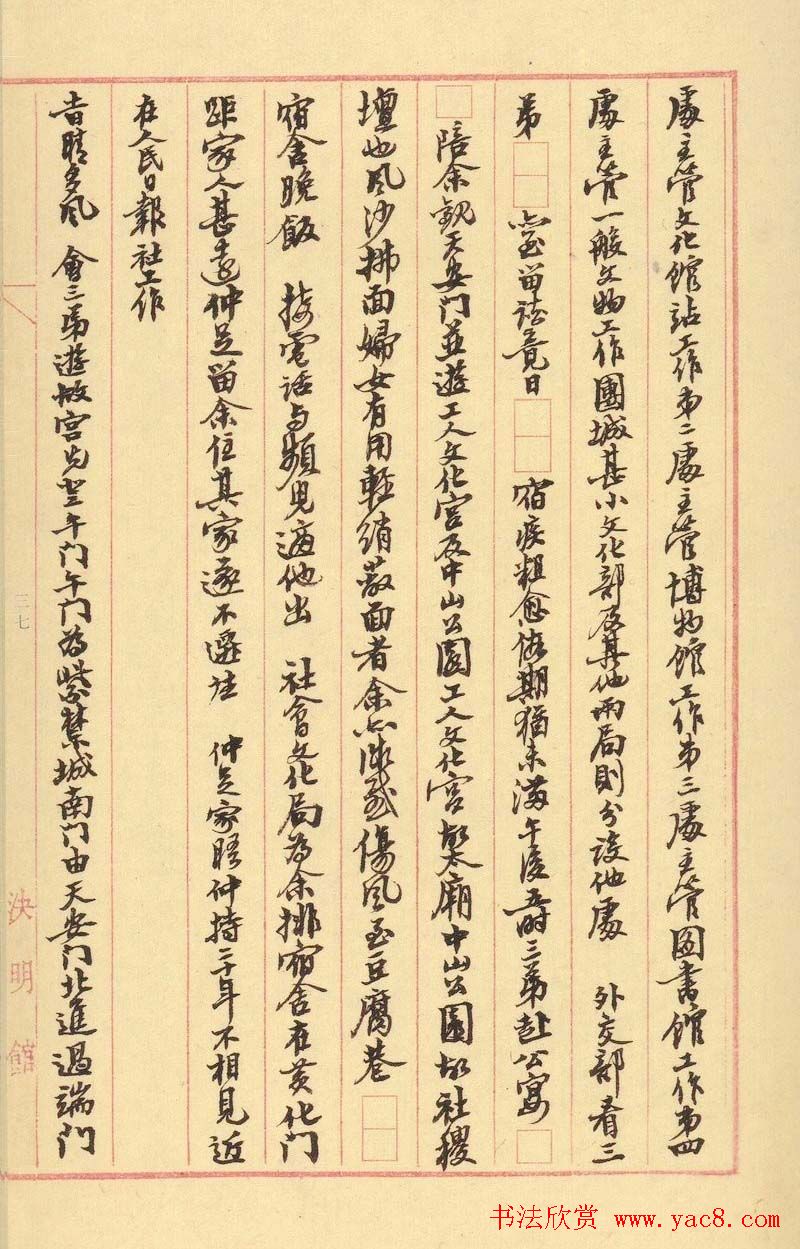 處主管文化館站工作第二處主管博物館工作第三處主管圖書館工作第四
處主管一般文物工作團城甚小文化部及其他兩局則分設他處 外交部看三
弟 留談竟日 宿疾粗愈假期猶未滿午後 時三弟赴公宴
陪余觀天安门並遊工人文化宮及中山公園工人文化宮故太廟中山公園故社稷
壇也風沙拂面婦女有用輕綃蔽面者余亦 感傷風至豆腐巷
宿舍晚飯 接電話与頻 適他出 社會文化局為余排宿舍在黄化门
距家人甚遠仲足留余住其家遂不遷往 仲足家晤仲持二十年不相見近
在人民日報社工作
晴多風 會三弟遊故宮先登午门午门為紫禁城南门由天安门北進過端门
三七
決明館
书法欣赏 www.yac8.com